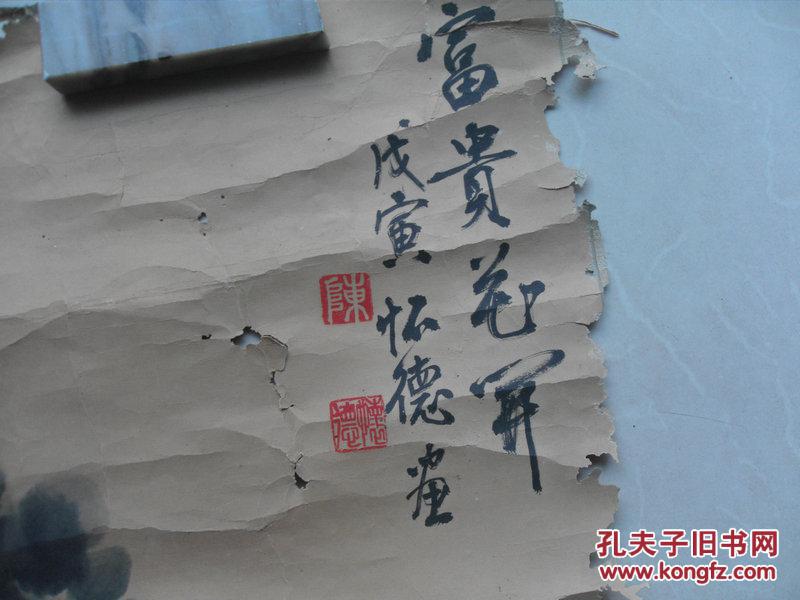 富貴花開
戊寅怀德画
陳
懷德
孔夫子旧书网
www.kongfz.com